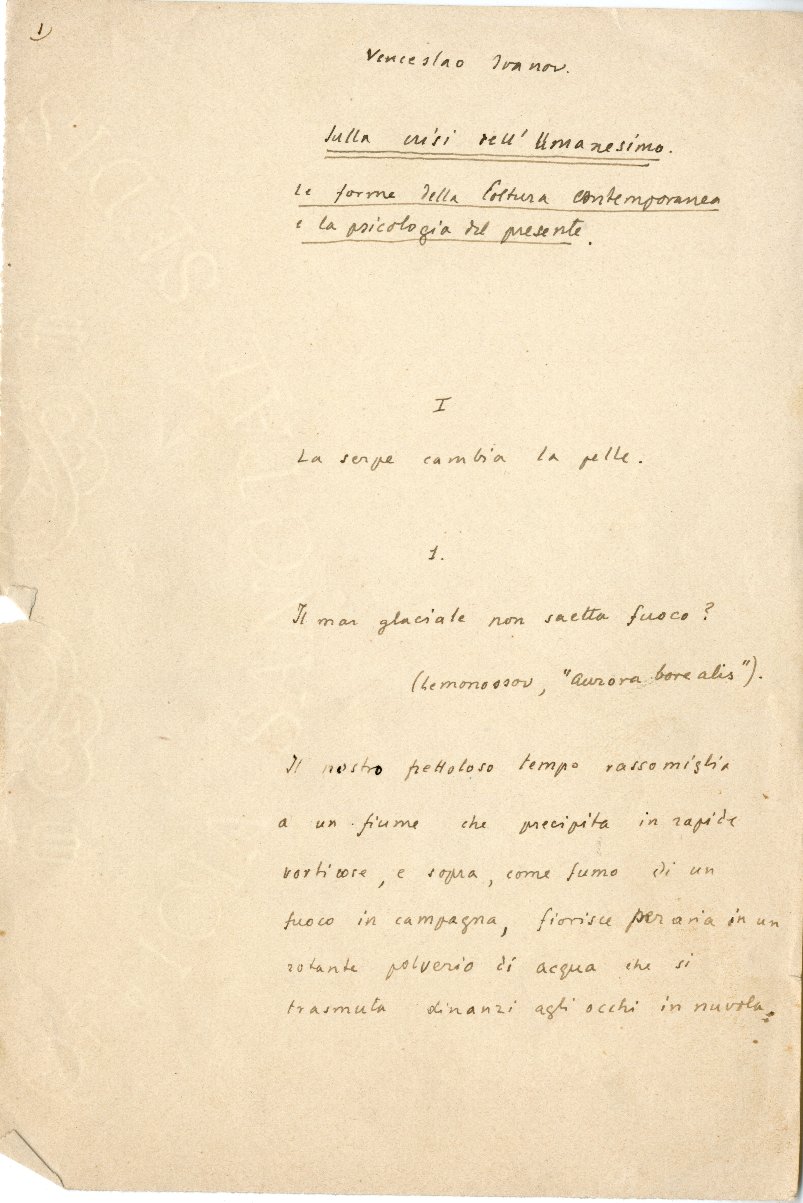 1)
Venceslao Ivanov.
Sulla crisi dell' Umanesimo.
Le forme della Coltura contemporanea
e la psicologia del presente.
I
La serpe cambia la pelle.
1.
Il mar glaciale non saetta fuoco?
(Lemonossov, "Aurora borealis").
Il nostro frettoloso tempo rassomiglia
a un fiume che precipita in rapide
vorticose, e sopra, come fumo di un
fuoco in campagna, fiorisce per aria in un
rotante polverio di acqua che si
trasmuta dinanzi agli occhi in nuvola.